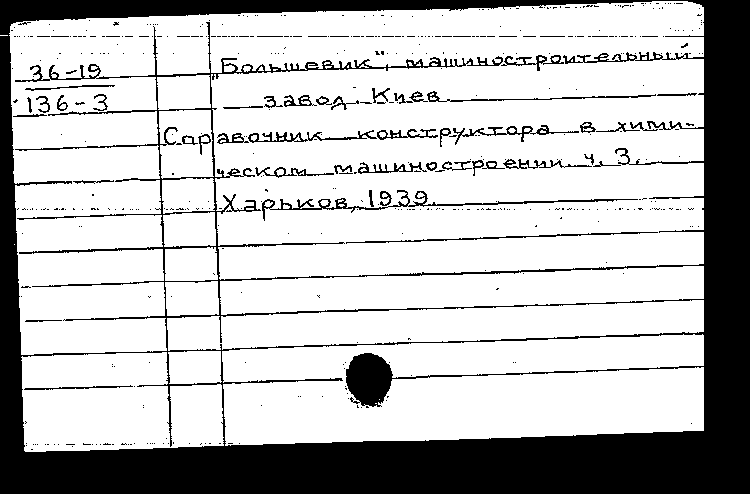 36-19
136-3
„Большевик", машиностроительный
завод. Киев.
Справочник конструктора в хими-
ческом машиностроении. ч. 3.
Харьков, 1939.